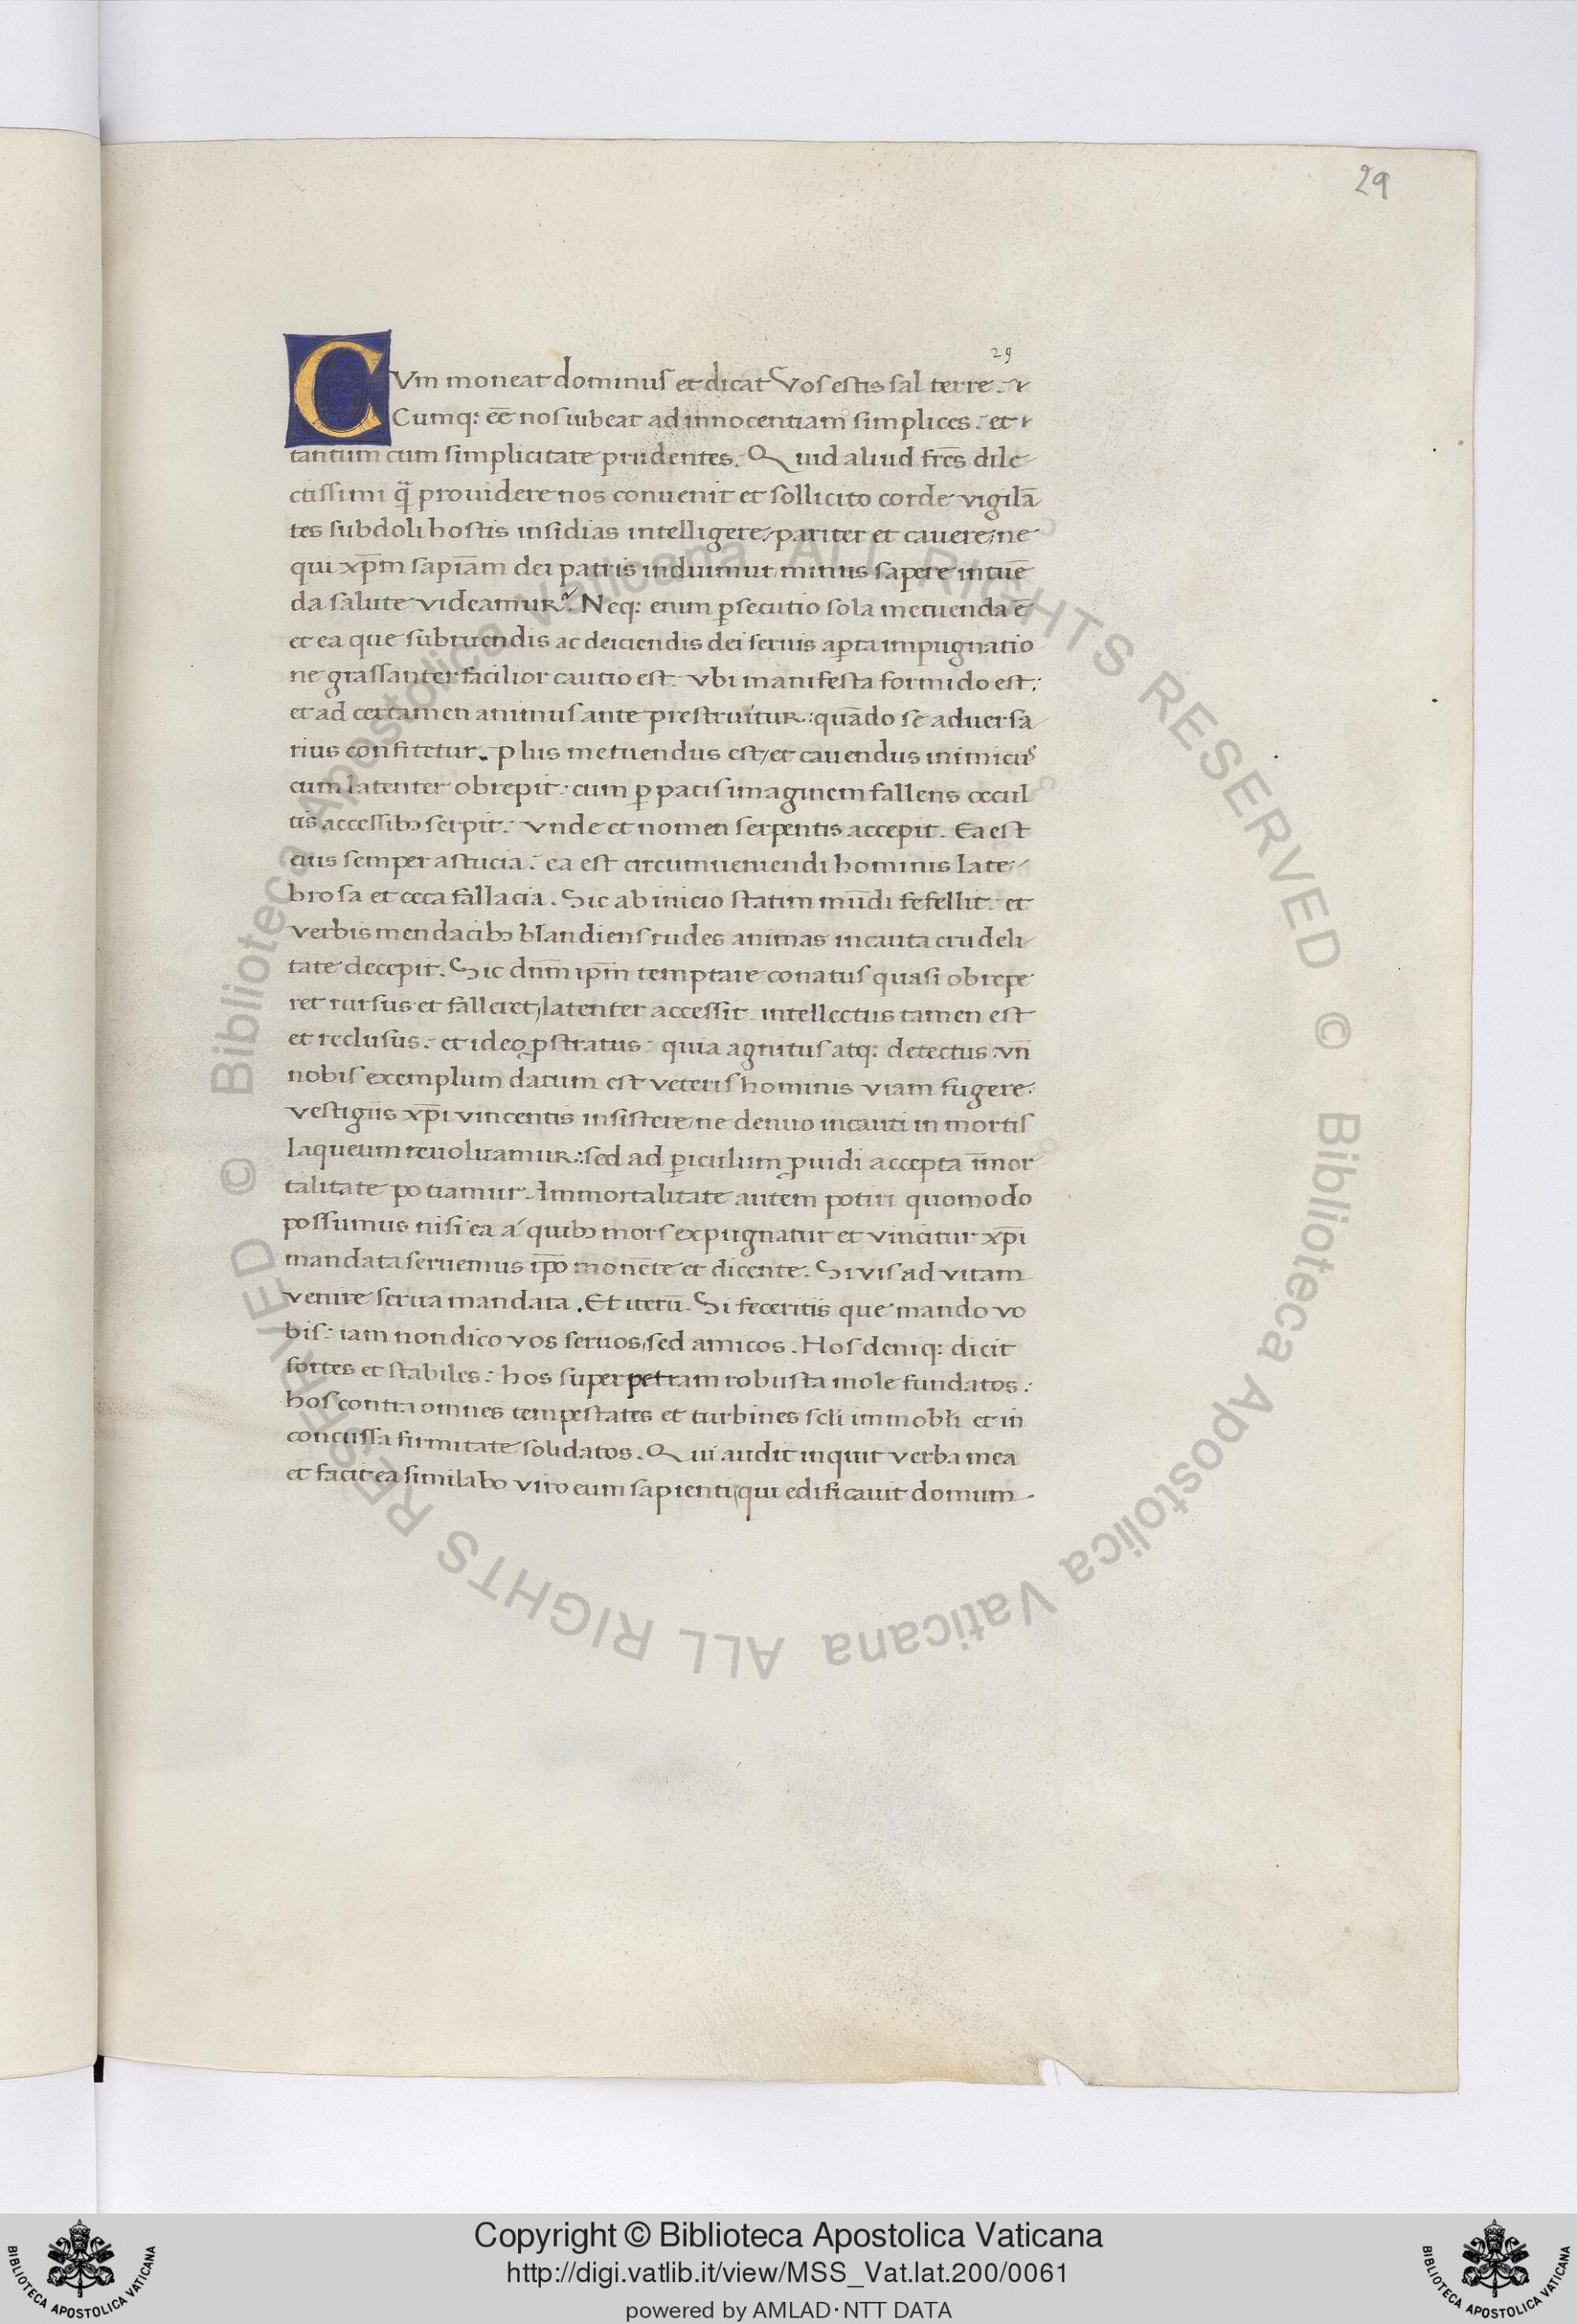 29
29
CVm moneat dominus et dicat Vos estis sal terre.
Cumq: eē nos iubeat ad innocentiam simplices. et
tantum cum simplicitate prudentes. Quid aliud frēs dile
ctissimi q̄ prouidere nos conuenit et sollicito corde vigilā
tes subdoli hostis insidias intelligere, pariter et cauere, ne
qui xp̄m sapīam dei patris induimur minus sapere in tuē
da salute videamur. Neq: enim ꝑsecutio sola metuenda ē
et ea que subruendis ac deiciendis dei seruis aꝑta impugnatio
ne grassanter facilior cautio est. vbi manifesta formido est:
et ad certamen animus ante prestruitur: quādo se aduersa
rius confitetur. plus metuendus est, et cauendus inimicus
cum latenter obrepit. cum ꝑ pacis imaginem fallens occul
tis accessibꝫ serpit. vnde et nomen serpentis accepit. Ea est
eius semper astucia. ea est circumueniendi hominis late
brosa et ceca fallacia. Sic ab inicio statim mūdi fefellit. et
verbis mendacibꝫ blandiens rudes animas incauta crudeli
tate decepit. Sic dnm̄ ipm̄ temptare conatus quasi obrepe
ret rursus et falleret, latenter accessit. intellectus tamen est
et reclusus. et ideo ꝓstratus. quia agnitus atq: detectus: vn̄
nobis exemplum datum est veteris hominis viam fugere.
vestigiis xp̄i vincentis insistere, ne denuo incauti in mortis
laqueum reuoluamur: sed ad ꝑiculum ꝓuidi accepta īmor
talitate potiamur. Immortalitate autem potiri quomodo
possumus nisi ea a quibꝫ mors expugnatur et vincitur xp̄i
mandata seruemus ip̄o monēte et dicente. Si vis ad vitam
venire serua mandata. Et iterū. Si feceritis que mando vo
bis: iam non dico vos seruos, sed amicos. Hos deniq: dicit
fortes et stabiles. hos super petram robusta mole fundatos.
hos contra omnes tempestates et turbines scl̄i immobl̄i et in
concussa firmitate solidatos. Qui audit inquit verba mea
et facit ea similabo viro eum sapienti, qui edificauit domum
© Biblioteca Apostolica Vaticana ALL RIGHTS RESERVED © Biblioteca Apostolica Vaticana ALL RIGHTS RESERVED
Copyright © Biblioteca Apostolica Vaticana
http://digi.vatlib.it/view/MSS_Vat.lat.200/0061
powered by AMLAD·NTT DATA
BIBLIOTECA APOSTOLICA VATICANA
BIBLIOTECA APOSTOLICA VATICANA